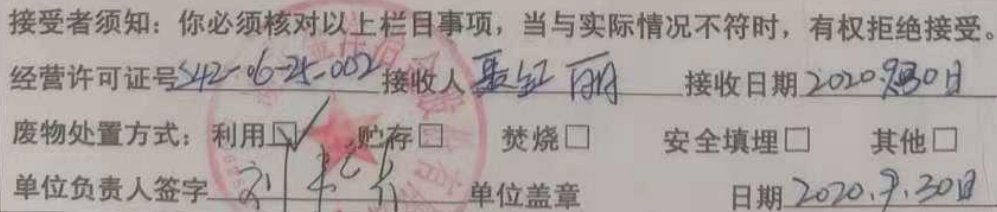 接受者须知：你必须核对以上栏目事项，当与实际情况不符时，有权拒绝接受。
经营许可证号S42-06-25-002接收人聂红丽 接收日期2020.9.30日
废物处置方式：利用☑ 贮存□ 焚烧□ 安全填埋□ 其他□
单位负责人签字 刘 单位盖章 日期2020.9.30日